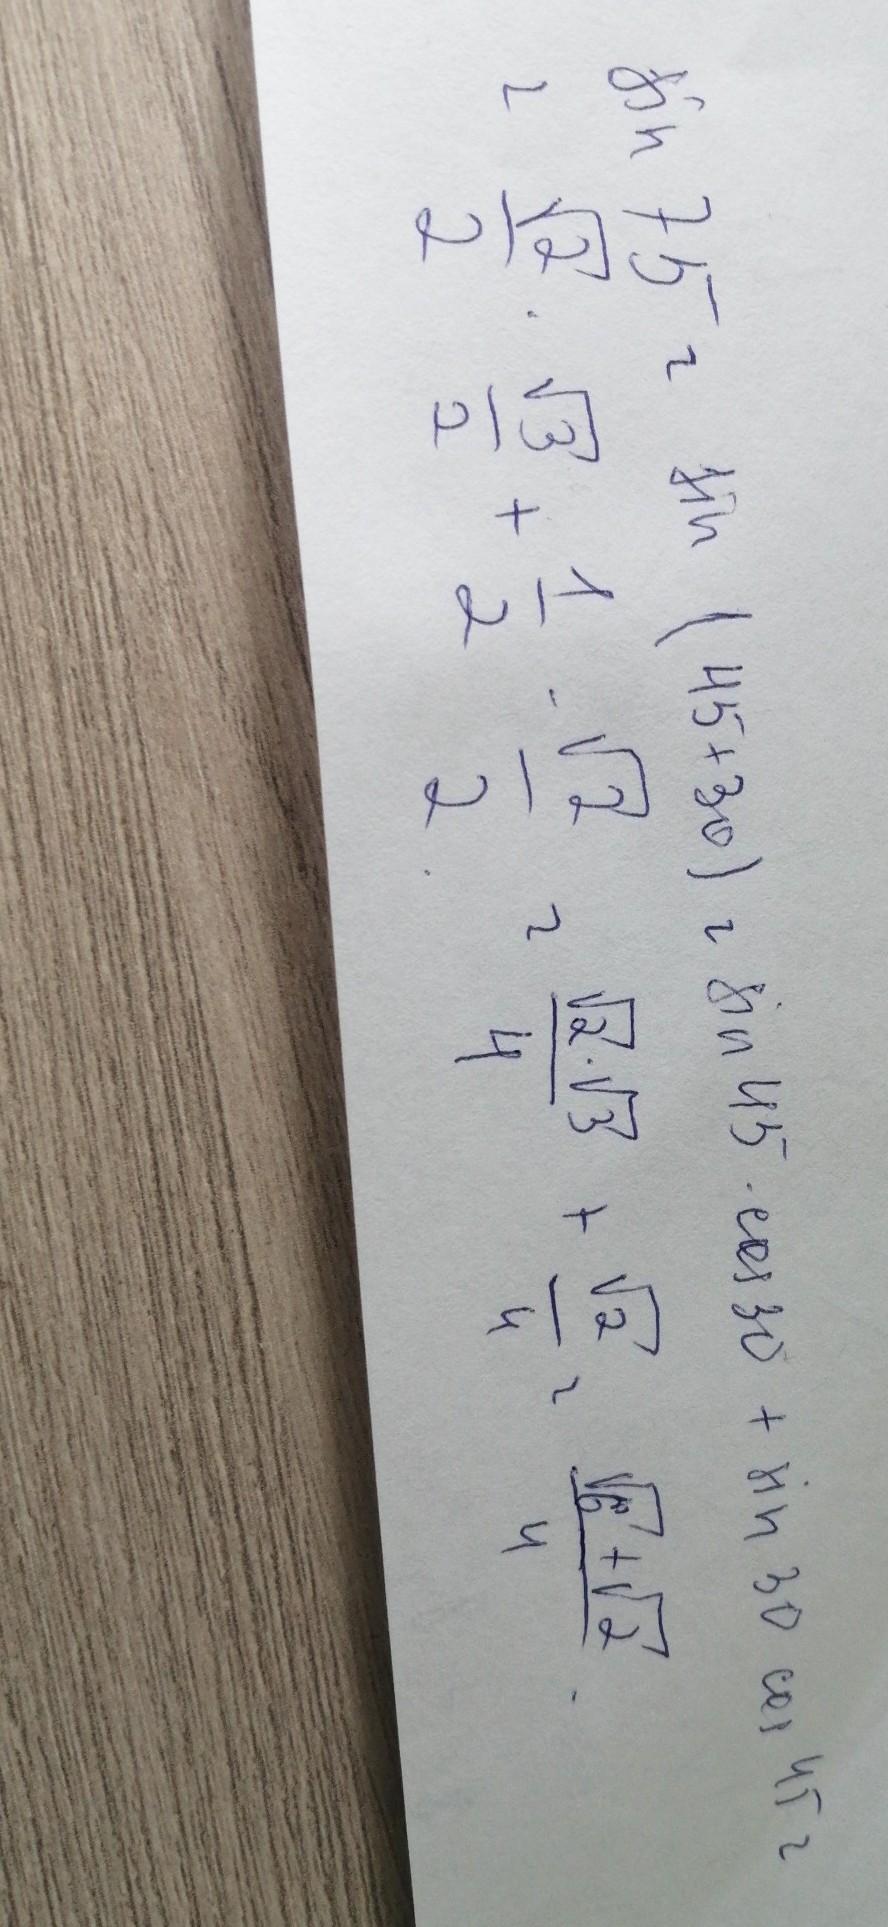 sin 75 = sin (45+30) = sin 45 · cos 30 + sin 30 cos 45 =
= √2/2 · √3/2 + 1/2 · √2/2 = √2·√3/4 + √2/4 = √6+√2/4.